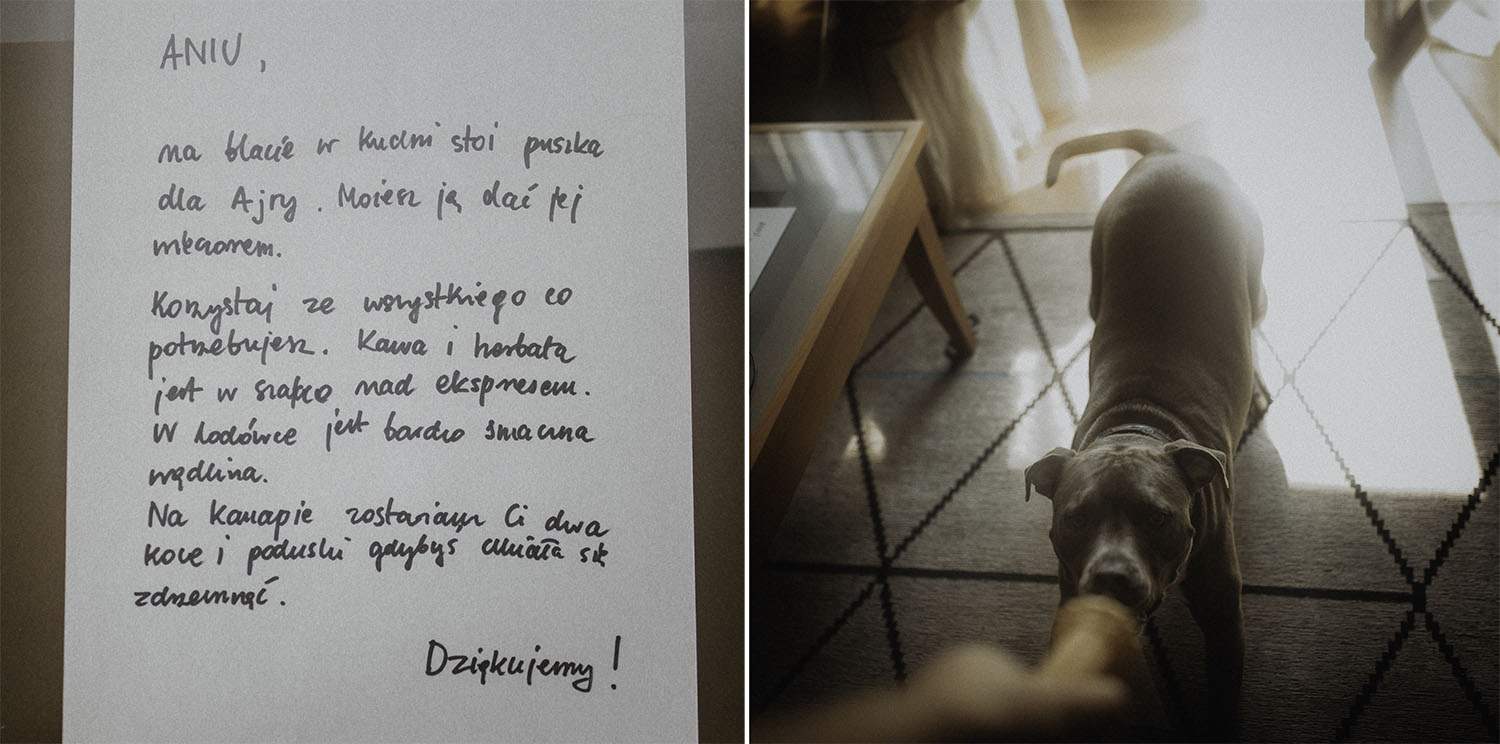 ANIU,
na blacie w kuchni stoi puszka
dla Ajry. Możesz ją dać jej
wieczorem.
Korzystaj ze wszystkiego co
potrzebujesz. Kawa i herbata
jest w szafce nad ekspresem.
W lodówce jest bardzo smaczna
wędlina.
Na kanapie zostawiam Ci dwa
koce i poduszki gdybyś chciała się
zdrzemnąć.
Dziękujemy!